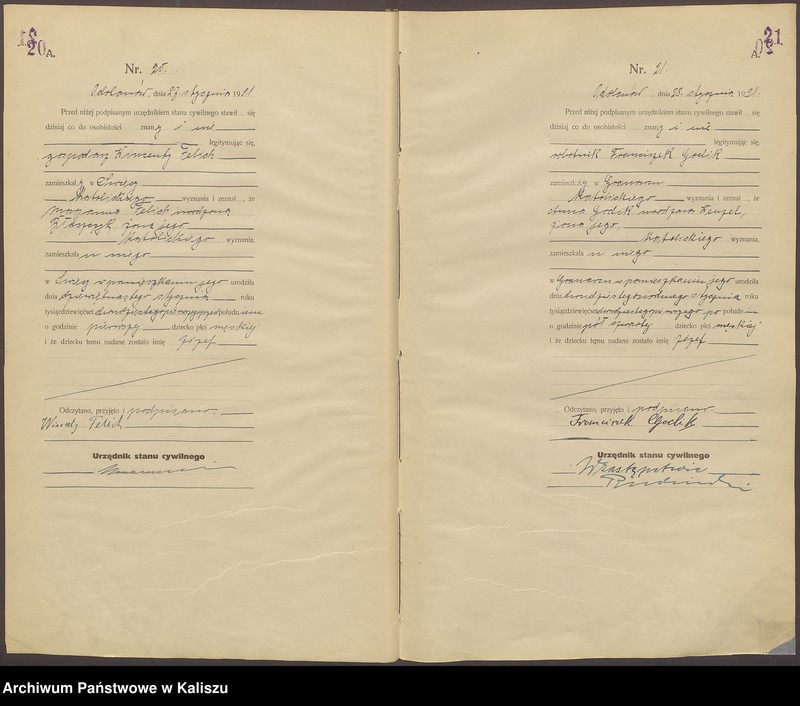 20
A.
Nr. 20.
Odolanów, dnia 27. stycznia 1921
Przed niżej podpisanym urzędnikiem stanu cywilnego stawił się
dzisiaj co do osobistości znany i nie
legitymując się,
gospodarz Wincenty Felich
zamieszkały w
katolickiego wyznania i zeznał, że
Marjanna Felich urodzona
żona jego,
katolickiego wyznania,
zamieszkała u niego
w pomieszkaniu jego urodziła
dnia dziewiętnastego stycznia roku
tysiącdziewięćset dwudziestego pierwszego południem
o godzinie pierwszej dziecko płci męskiej
i że dziecku temu nadane zostało imię Józef
Odczytano, przyjęto i podpisano.
Wincenty Felich
Urzędnik stanu cywilnego
21
A.
Nr. 21.
Odolanów dnia 28. stycznia 1921.
Przed niżej podpisanym urzędnikiem stanu cywilnego stawił się
dzisiaj co do osobistości znany i nie
legitymując się,
robotnik Franciszek Goclik
zamieszkały w
katolickiego wyznania i zeznał, że
Goclik urodzona
żona jego,
katolickiego wyznania,
zamieszkała u niego
w pomieszkaniu jego urodziła
dnia dwudziestegoósmego stycznia roku
tysiącdziewięćset dwudziestego pierwszego po południu
o godzinie pół czwartej dziecko płci męskiej
i że dziecku temu nadane zostało imię Józef
Odczytano, przyjęto i podpisano
Franciszek Goclik
Urzędnik stanu cywilnego
W zastępstwie
Archiwum Państwowe w Kaliszu